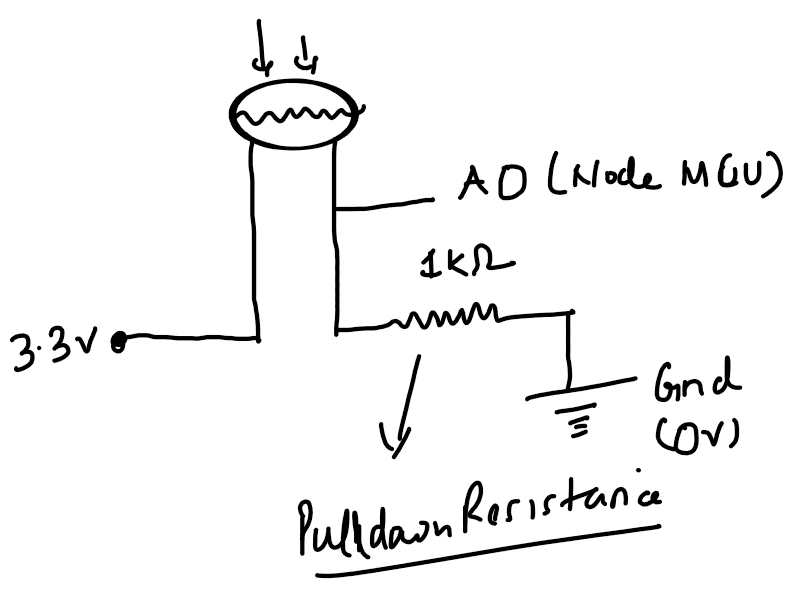 A0 (Node MCU)
1KΩ
3.3V
Gnd
(0V)
Pulldown Resistance